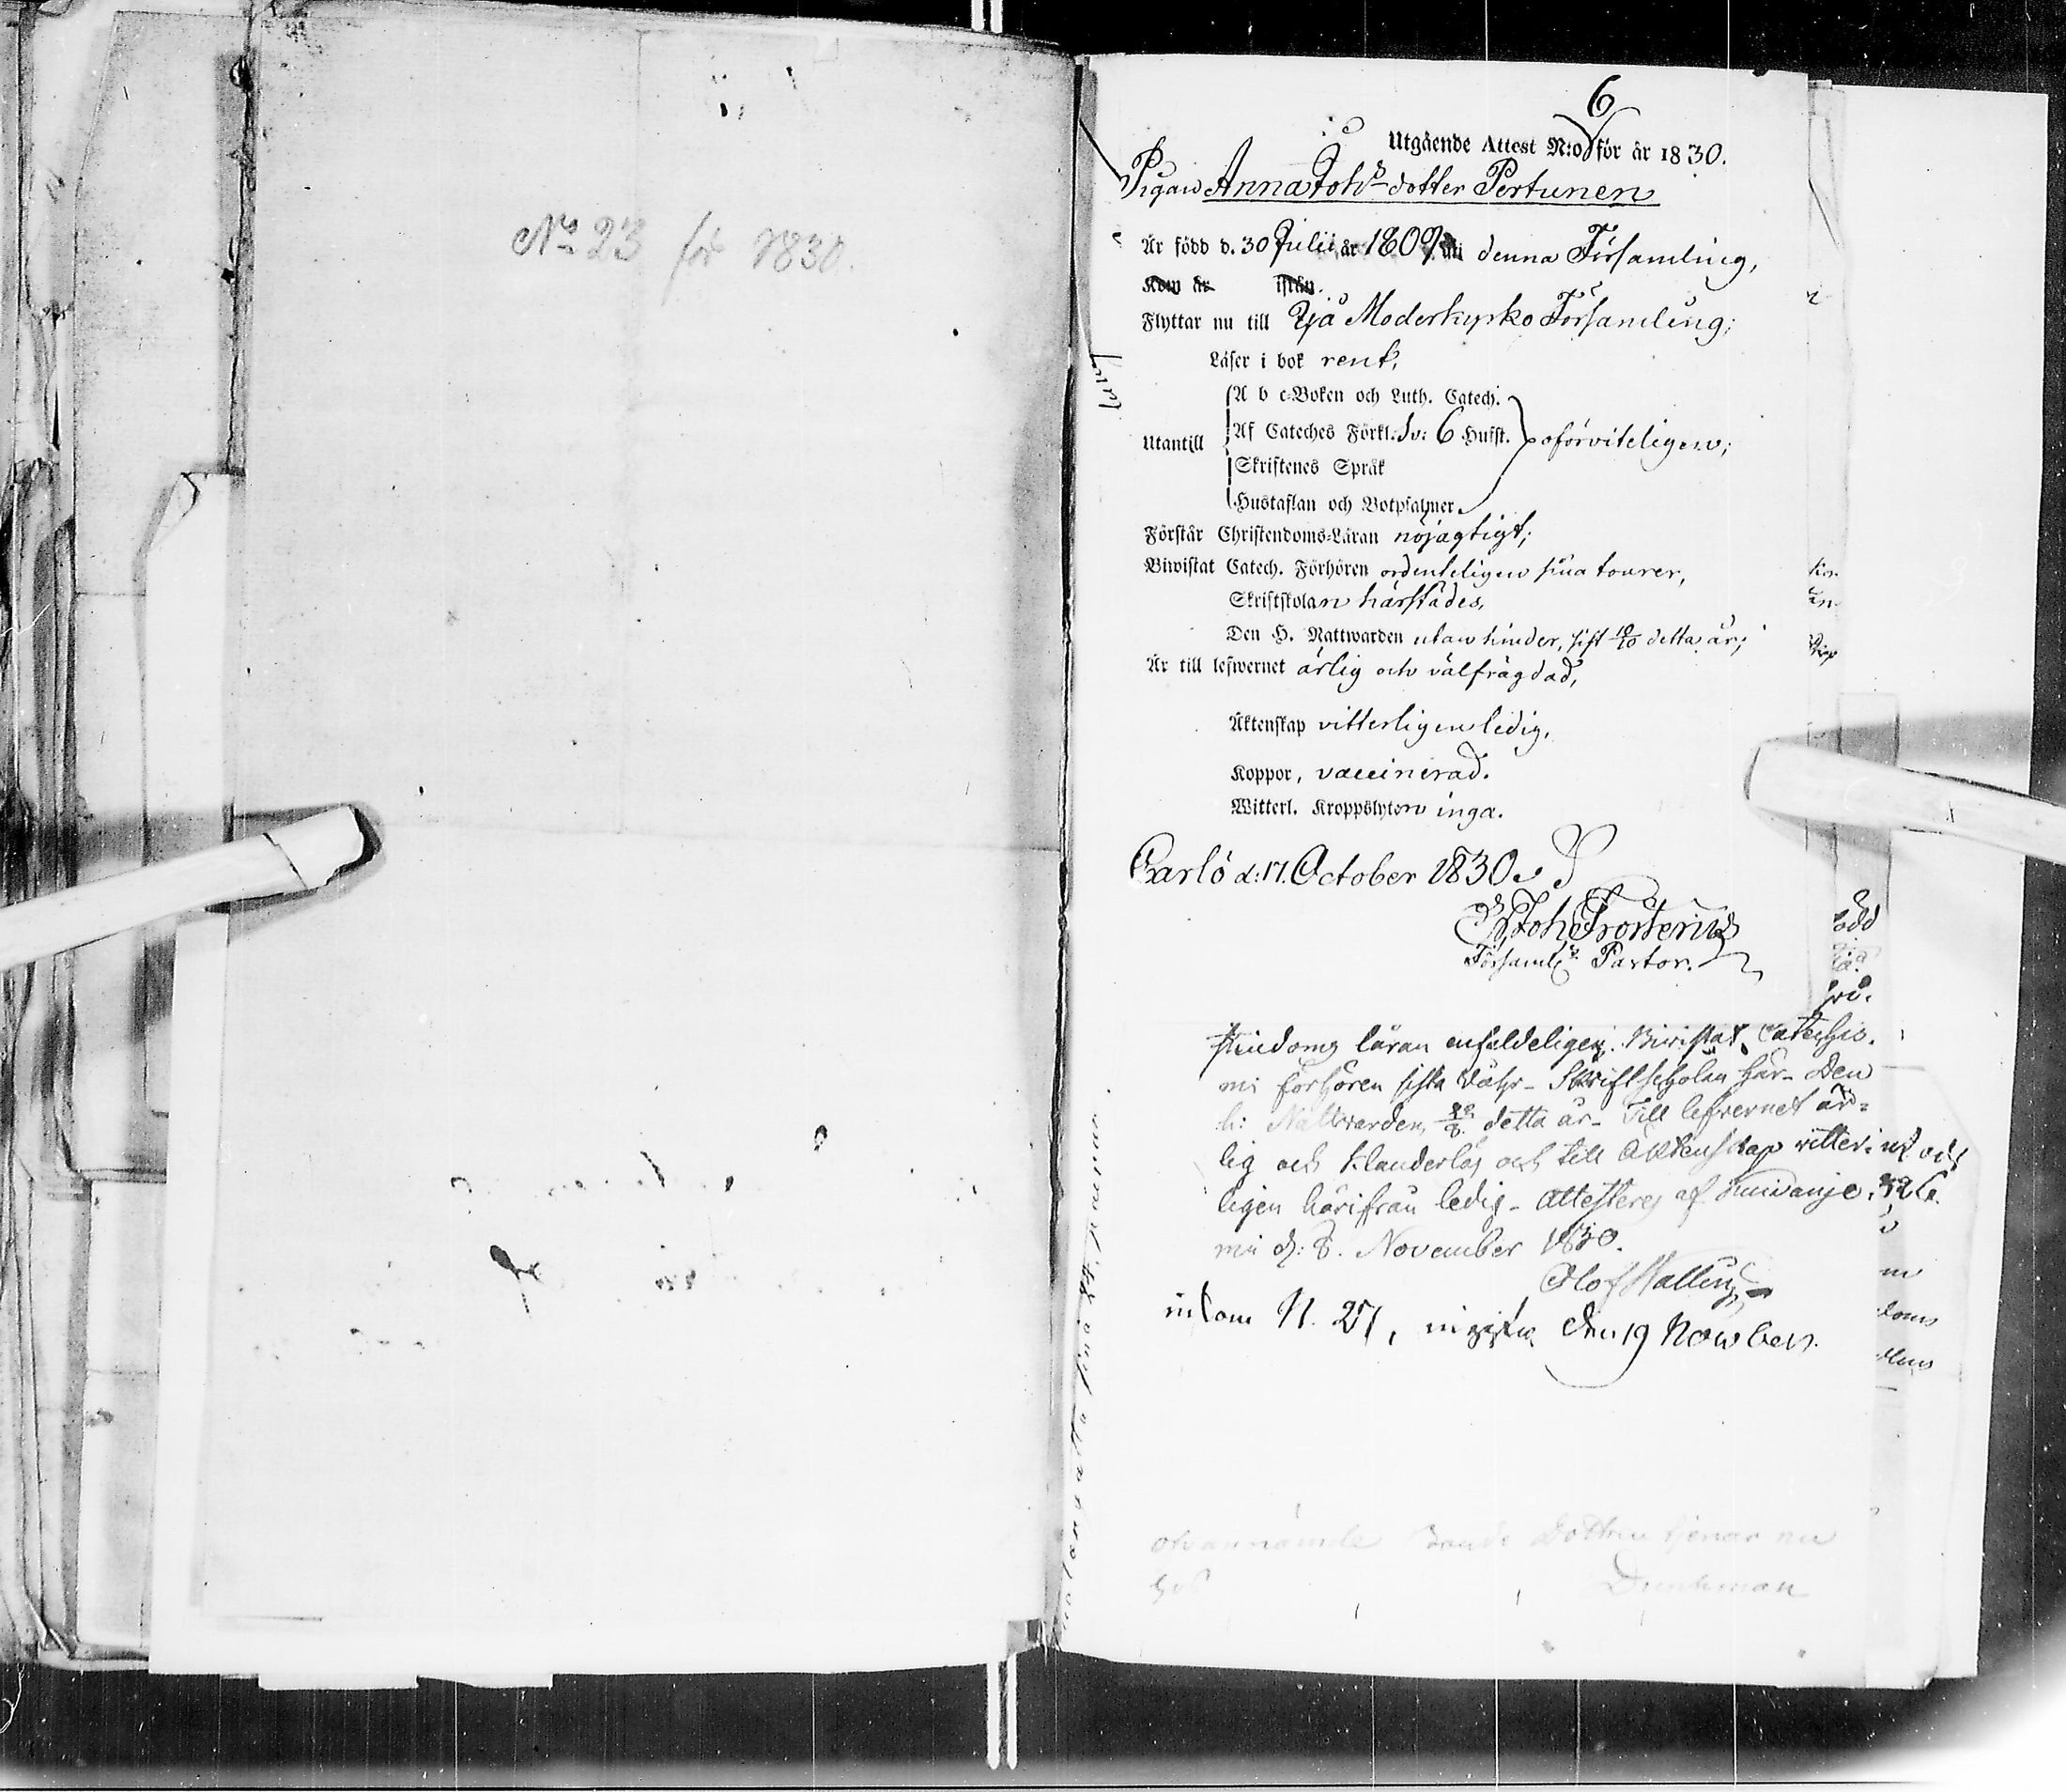 No 23 för 1830.
6
Utgående Attest N:o för år 1830.
Pigan Anna Johs dotter Pertunen
Är född d. 30 Julii år 1809 uti denna Församling,
Kom år ifrån
Flyttar nu till Ijå Moderkyrko Församling;
Läser i bok rent,
A b c-Boken och Luth. Catech.
Utantill Af Cateches Förkl. Sv: 6 Hufst. oförviteligen;
Skriftenes Språk
Hustaflan och Botpsalmer
Förstår Christendoms-Läran nöjagtigt;
Biwistat Catech. Förhören ordenteligen sina tourer,
Skriftskolan härstädes,
Den H. Nattwarden utan hinder, sist 10/10 detta år;
Är till lefwernet ärlig och välfrägdad,
Äktenskap vitterligen ledig,
Koppor, vaccinerad.
Witterl. Kroppslyten inga.
Carlö d: 17. October 1830.
Joh Frosterus
Förs Pastor.
läran enfaldeligen. Bivistat Catechis-
mi förhören sista Skriftscholan här. Den
h: Nattvarden detta år. Till lefvernet är-
lig och klanderlös och till Äktenskap vitter-
ligen härifrån ledig. Attesteras af
d: 8. November 1830.
Olof
inkom N. 27, den 19 Nowber.
ofvannämde dottren tjenar nu
hos